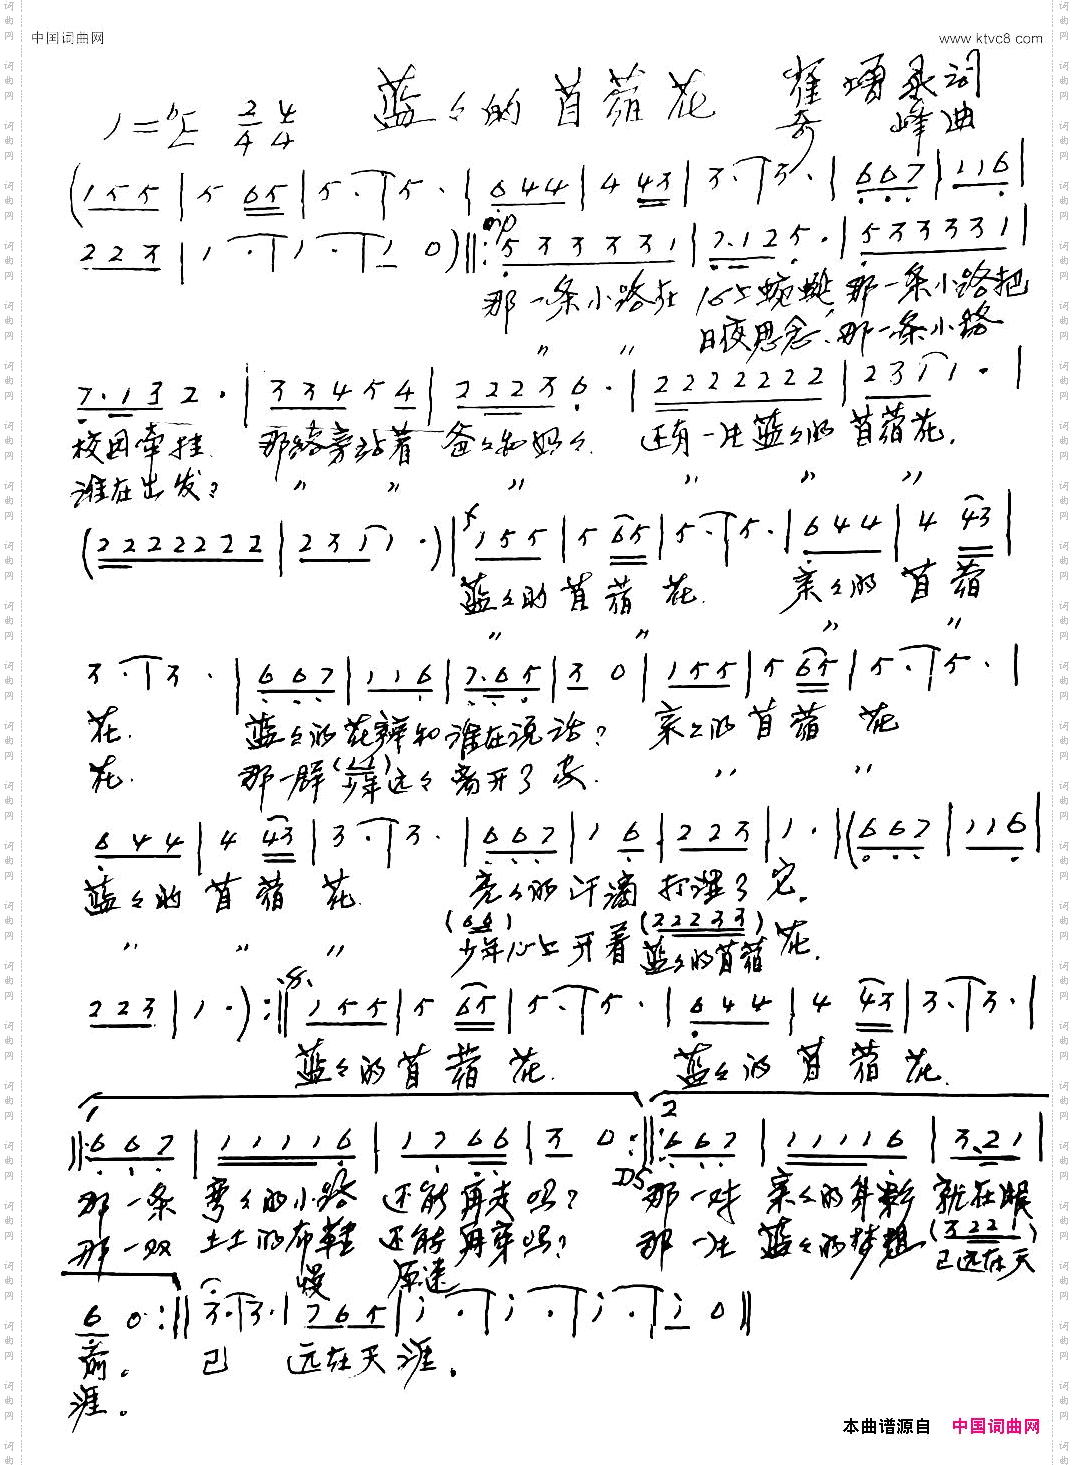 中国词曲网
www.ktvc8.com
蓝々的苜蓿花
崔增录词
奇峰曲
1=♭E 2/4 4/4
(1 5 5 | 5 6 5 | 5 . | 5 . | 6 4 4 | 4 4 3 | 3 . | 3 . | 6 6 7 | 1 1 6 |
2 2 3 | 1 . 1 . 1 0 ) ‖: mp 5 3 3 3 3 3 1 | 7 . 1 2 5 . | 5 3 3 3 3 3 1 |
那一条小路在 蜿蜒,那一条小路把
〃 〃 日夜思念、那一条小路
7 . 1 3 2 . | 3 3 4 5 4 | 2 2 2 3 6 . | 2 2 2 2 2 2 2 | 2 3 1 1 . |
校园牵挂. 那路旁站着 爸々和妈々. 还有一片蓝々的苜蓿花.
谁在出发? 〃 〃 〃 〃 〃 〃
(2 2 2 2 2 2 2 | 2 3 1 1 . ) | f 1 5 5 | 5 6 5 | 5 . 5 . | 6 4 4 | 4 4 3 |
蓝々的苜蓿花. 亲々的苜蓿
〃 〃 〃 〃
3 . 3 . | 6 6 7 | 1 1 6 | 7 . 6 5 | 3 0 | 1 5 5 | 5 6 5 | 5 . 5 . |
花. 蓝々的花瓣和谁在说话? 亲々的苜蓿花
花. 那一群少年远々离开了家. 〃 〃
6 4 4 | 4 4 3 | 3 . 3 . | 6 6 7 | 1 6 | 2 2 3 | 1 . | (6 6 7 | 1 1 6 |
蓝々的苜蓿花. 亮々的汗滴打湿了它.
(6 6) (2 2 2 3 3)
〃 〃 〃 少年心上开着蓝々的苜蓿花.
2 2 3 | 1 . ) :‖ 1 5 5 | 5 6 5 | 5 . 5 . | 6 4 4 | 4 4 3 | 3 . 3 . |
蓝々的苜蓿花. 蓝々的苜蓿花.
1 2
‖: 6 6 7 | 1 1 1 1 6 | 1 7 6 6 | 3 0 :‖: 6 6 7 | 1 1 1 1 6 | 3 . 2 1 |
DS
那一条弯々的小路还能再走吗? 那一对亲々的身影就在眼
(3 2 2 1)
那一双土土的布鞋还能再穿吗? 那一片蓝々的梦想已远在天
慢 原速
6 0 :‖ 3 . 3 . | 7 6 5 | i . i . i . i 0 ‖
前。 已 远在天涯。
涯。
本曲谱源自 中国词曲网